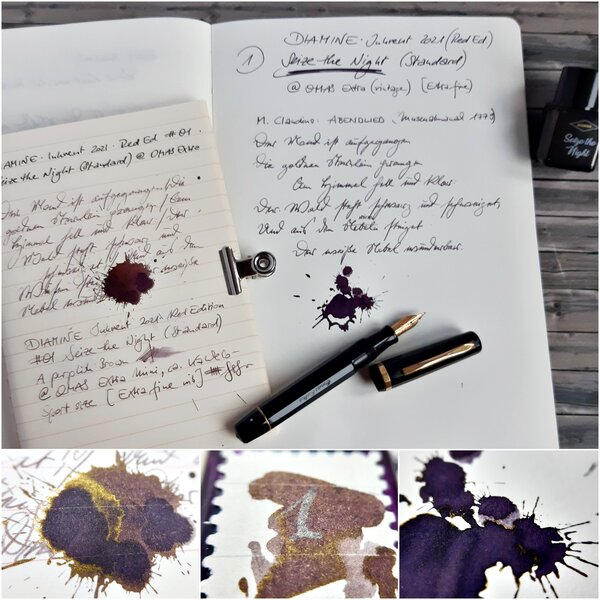 DIAMINE · Inkvent 2021 (Red Ed)
1 Seize the Night (Standard)
@ OMAS Extra (vintage) [Extra fine]
M. Claudius: ABENDLIED, Musenalmanach 1779
Der Mond ist aufgegangen
Die goldnen Sternlein prangen
Am Himmel hell und klar.
Der Wald steht schwarz und schweiget,
Und aus den Wiesen steiget
Der weiße Nebel wunderbar.
Seize the Night
DIAMINE · Inkvent 2021 · Red Ed #01 ·
Seize the Night (Standard) @ OMAS Extra
Der Mond ist aufgegangen / Die
goldnen Sternlein prangen / Am
Himmel hell und klar / Der
Wald steht schwarz und
schweiget
Nebel
DIAMINE Inkvent 2021 · Red Edition
#01 Seize the Night (Standard)
A purplish Brown
@ OMAS Extra Mini, ca. Kaweco-
Sport size [Extra fine nib]
1